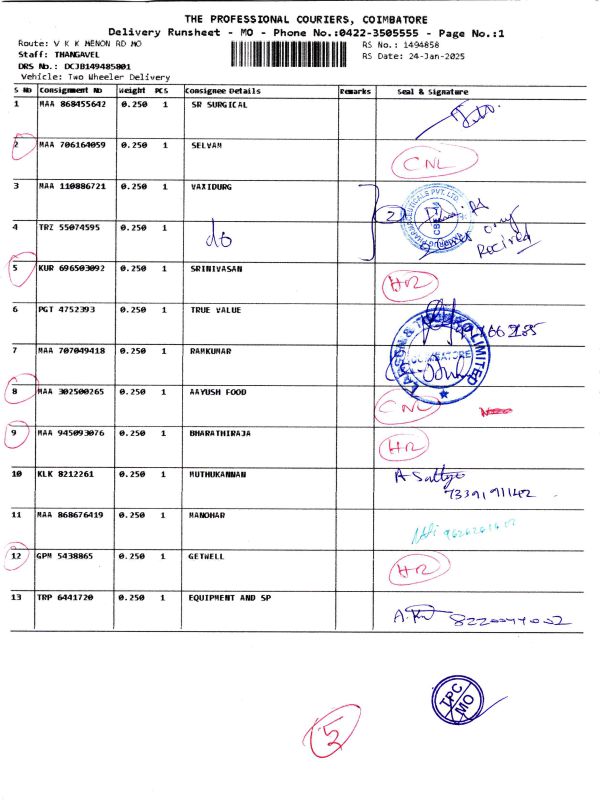 THE PROFESSIONAL COURIERS, COIMBATORE
Delivery Runsheet - MO - Phone No.:0422-3505555 - Page No.:1
Route: V K K MENON RD MO
RS No.: 1494858
Staff: THANGAVEL
RS Date: 24-Jan-2025
DRS No.: DCJB149485801
Vehicle: Two Wheeler Delivery
S No Consignment No Weight PCS Consignee Details Remarks Seal & Signature
1 MAA 868455642 0.250 1 SR SURGICAL
2 MAA 706164059 0.250 1 SELVAM CNL
3 MAA 110886721 0.250 1 VAXIDURG
2
4 TRZ 55074595 0.250 1 do
cover only
Recived
5 KUR 696503092 0.250 1 SRINIVASAN HR
6 PGT 4752393 0.250 1 TRUE VALUE
7 MAA 707049418 0.250 1 RAMKUMAR
COIMBATORE
LIMITED
8 MAA 302500265 0.250 1 AAYUSH FOOD CNL
9 MAA 945093076 0.250 1 BHARATHIRAJA HR
10 KLK 8212261 0.250 1 MUTHUKANNAN A Sathya
7339191142
11 MAA 868676419 0.250 1 MANOHAR
12 GPM 5438865 0.250 1 GETWELL HR
13 TRP 6441720 0.250 1 EQUIPMENT AND SP
TPC
MO
5